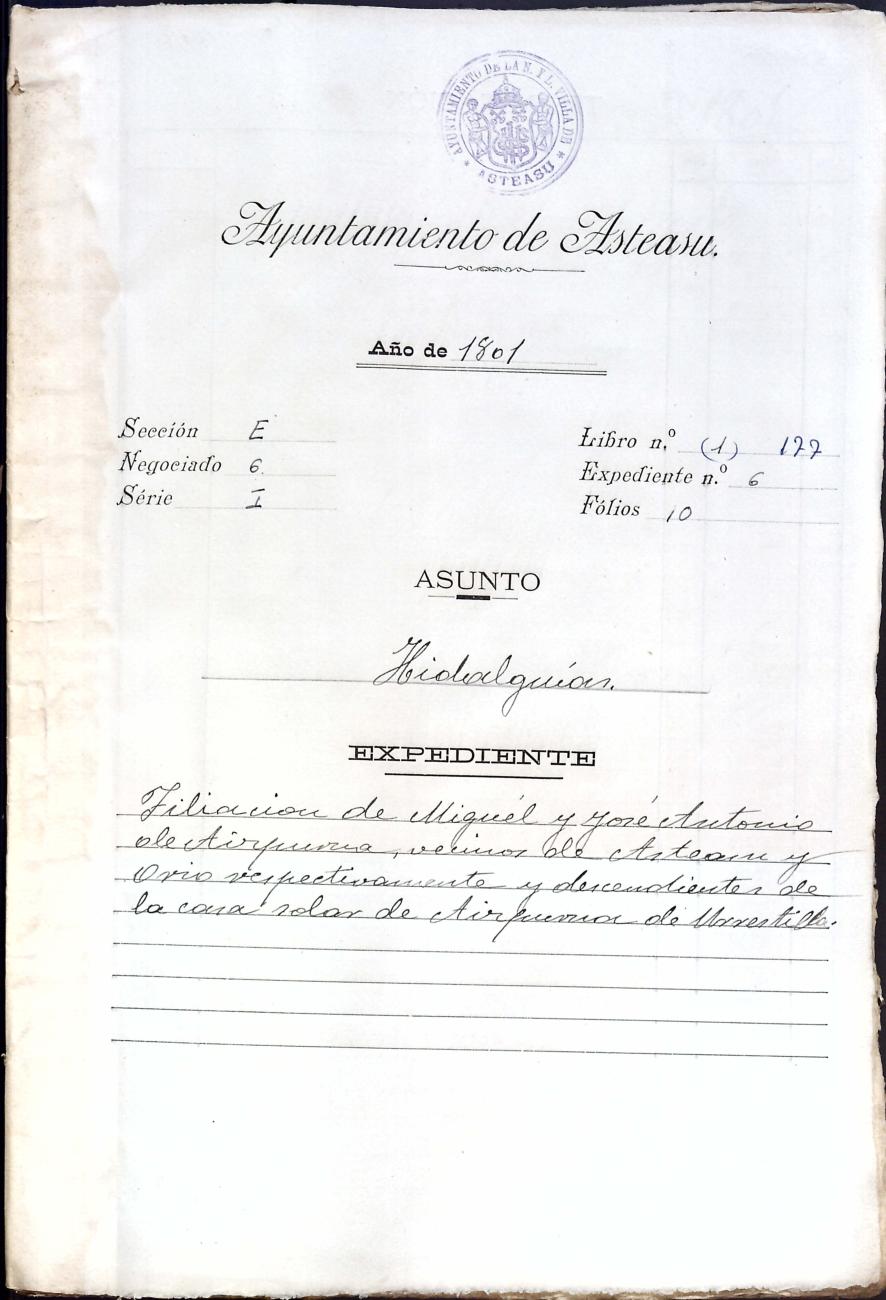 AYUNTAMIENTO DE LA N. Y L. VILLA DE
* ASTEASU *
Ayuntamiento de Asteasu.
Año de 1801
Sección E
Negociado 6.
Série I
Libro n.º (1) 177
Expediente n.º 6
Fólios 10
ASUNTO
Hidalguías.
EXPEDIENTE
Filiacion de Miguél y José Antonio
de Aizpurua, vecinos de Asteasu y
Orio respectivamente y descendientes de
la casa solar de Aizpurua de Urrestilla.